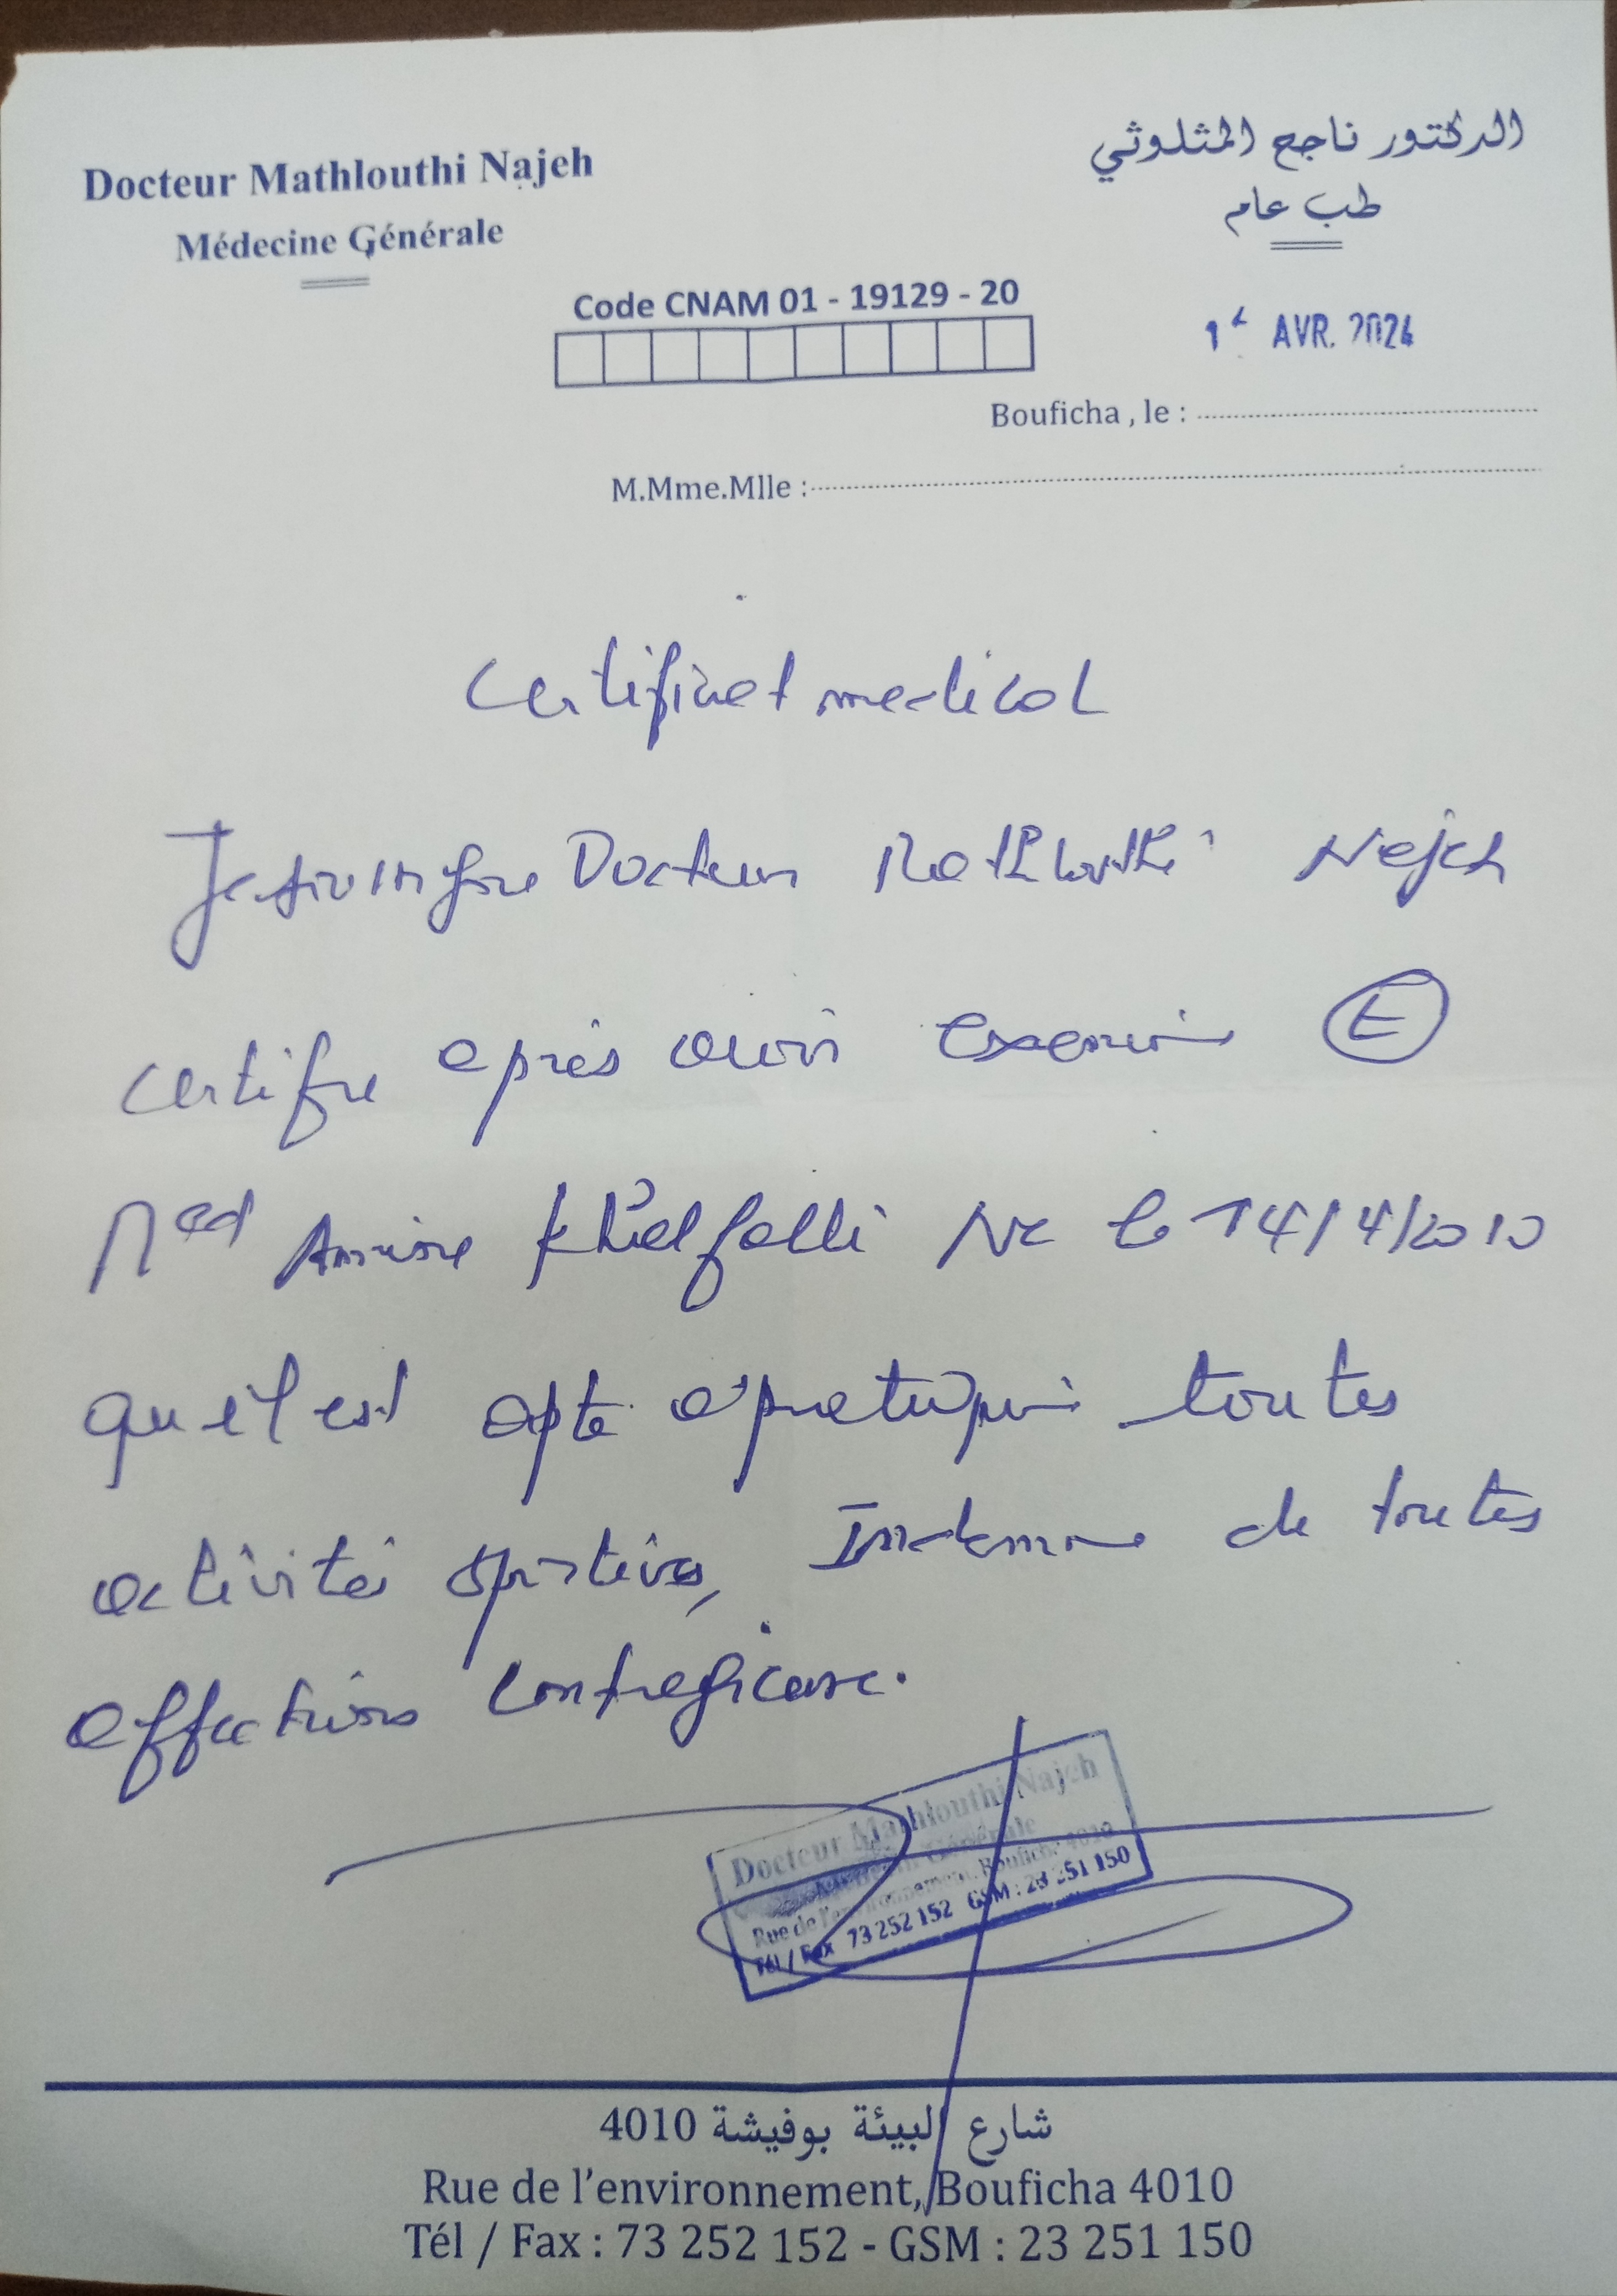 Docteur Mathlouthi Najeh
Médecine Générale
الدكتور ناجح المثلوثي
طب عام
Code CNAM 01 - 19129 - 20
AVR. 2024
Bouficha , le :
M.Mme.Mlle :
Certificat medical
Je soussigné Docteur Mathlouthi Najeh
certifie après avoir examiné E
Med Amine Khelfalli Né le 14/4/2010
qu'il est apte à pratiquer toutes
activités sportives, Indemne de toutes
affections contagieuse.
Docteur Mathlouthi Najeh
Médecine Générale
Rue de l'environnement, Bouficha 4010
Tél / Fax 73 252 152 GSM : 23 251 150
شارع البيئة بوفيشة 4010
Rue de l'environnement, Bouficha 4010
Tél / Fax : 73 252 152 - GSM : 23 251 150